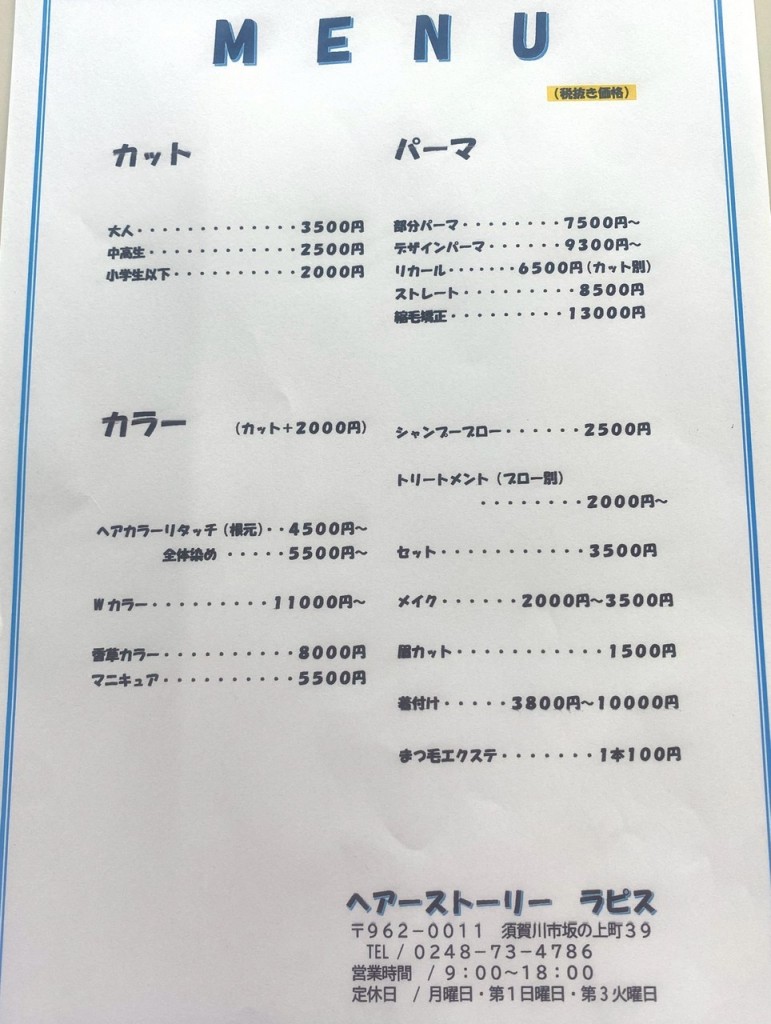 MENU
(税抜き価格)
カット
大人・・・・・・・・・・・・・3500円
中高生・・・・・・・・・・・・2500円
小学生以下・・・・・・・・・・2000円
パーマ
部分パーマ・・・・・・・・7500円～
デザインパーマ・・・・・・9300円～
リカール・・・・・・・6500円(カット別)
ストレート・・・・・・・・・8500円
縮毛矯正・・・・・・・・・13000円
カラー (カット+2000円)
ヘアカラーリタッチ(根元)・・4500円～
全体染め ・・・・・5500円～
Wカラー・・・・・・・・・11000円～
香草カラー・・・・・・・・・・8000円
マニキュア・・・・・・・・・・5500円
シャンプーブロー・・・・・・2500円
トリートメント(ブロー別)
・・・・・・・・2000円～
セット・・・・・・・・・・・3500円
メイク・・・・・・2000円～3500円
眉カット・・・・・・・・・・・1500円
着付け・・・・・3800円～10000円
まつ毛エクステ・・・・・・・1本100円
ヘアーストーリー ラピス
〒962-0011 須賀川市坂の上町39
TEL / 0248-73-4786
営業時間 / 9:00～18:00
定休日 / 月曜日・第1日曜日・第3火曜日